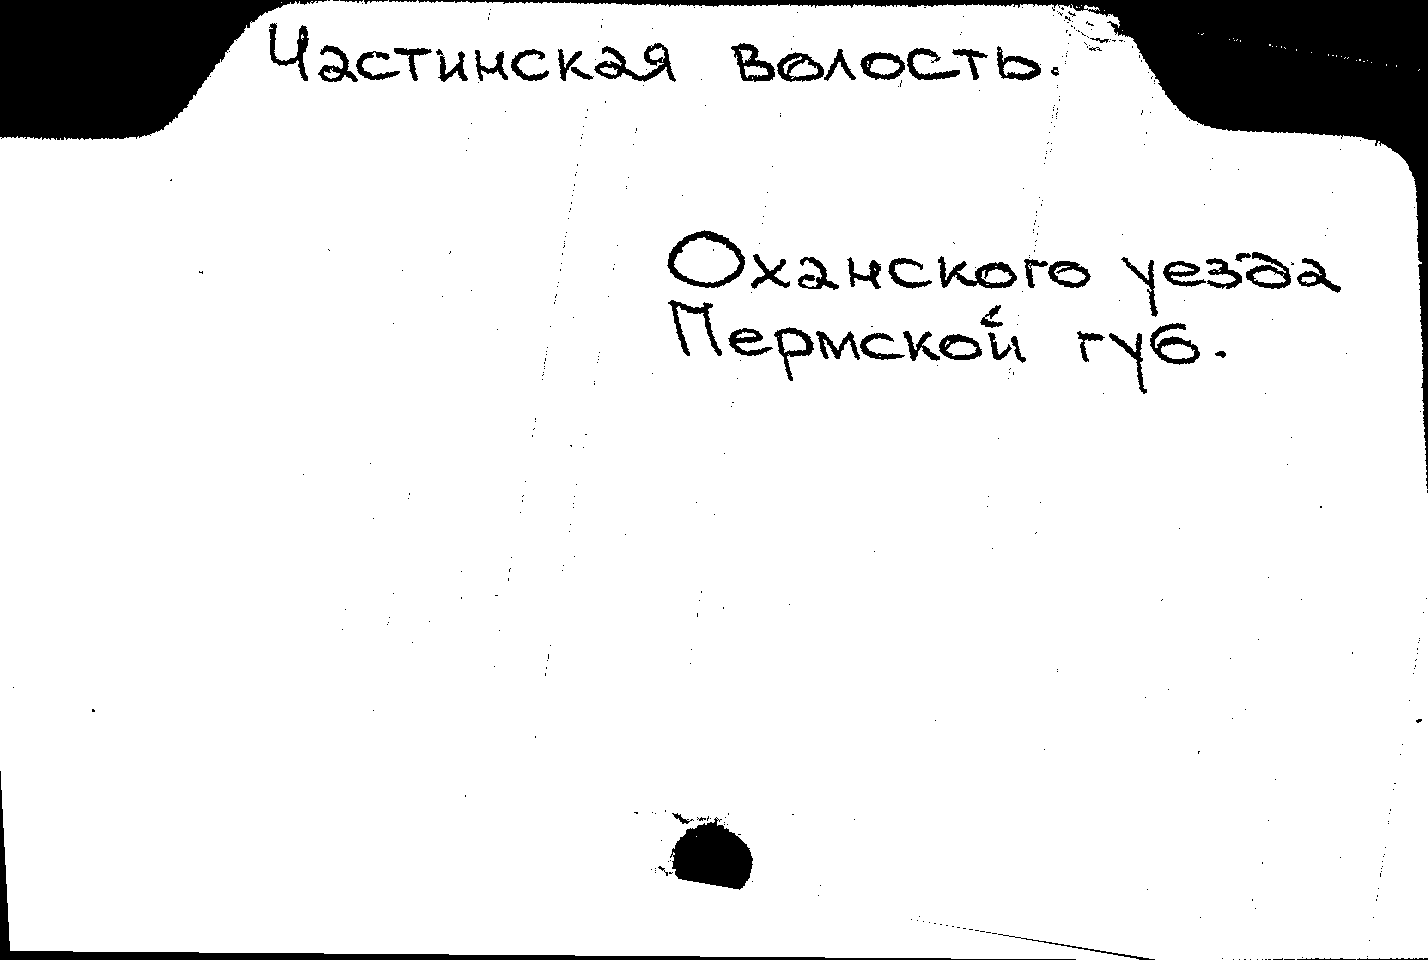 Частинская волость.
Оханского уезда
Пермской губ.